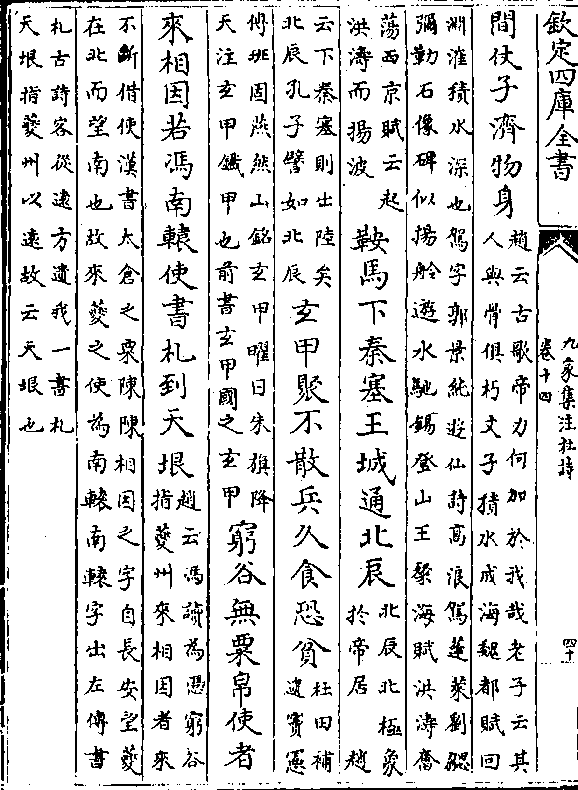 欽定四庫全書
九家集注杜詩
卷十四
四十
間仗子濟物身
趙云古歌帝力何加於我哉老子云其
人與骨俱朽文子積水成海魏都賦回
淵漼積水深也駕字郭景純遊仙詩高浪駕蓬萊劉勰
彌勒石像碑似揚舲遊水馳錫登山王粲海賦洪濤奮
蕩西京賦云起
洪濤而揚波
鞍馬下秦塞王城通北辰
北辰北極象
於帝居 趙
云下秦塞則出陸矣
北辰孔子譬如北辰
玄甲聚不散兵久食恐貧
杜田補
遺竇憲
傅班固燕然山銘玄甲曜日朱旗降
天注玄甲鐵甲也前書玄甲國之玄甲
窮谷無粟帛使者
來相因若馮南轅使書札到天垠
趙云馮讀為憑窮谷
指夔州來相因者來
不斷借使漢書太倉之粟陳陳相因之字自長安望夔
在北而望南也故來夔之使為南轅南轅字出左傳書
札古詩客從遠方遺我一書札
天垠指夔州以遠故云天垠也